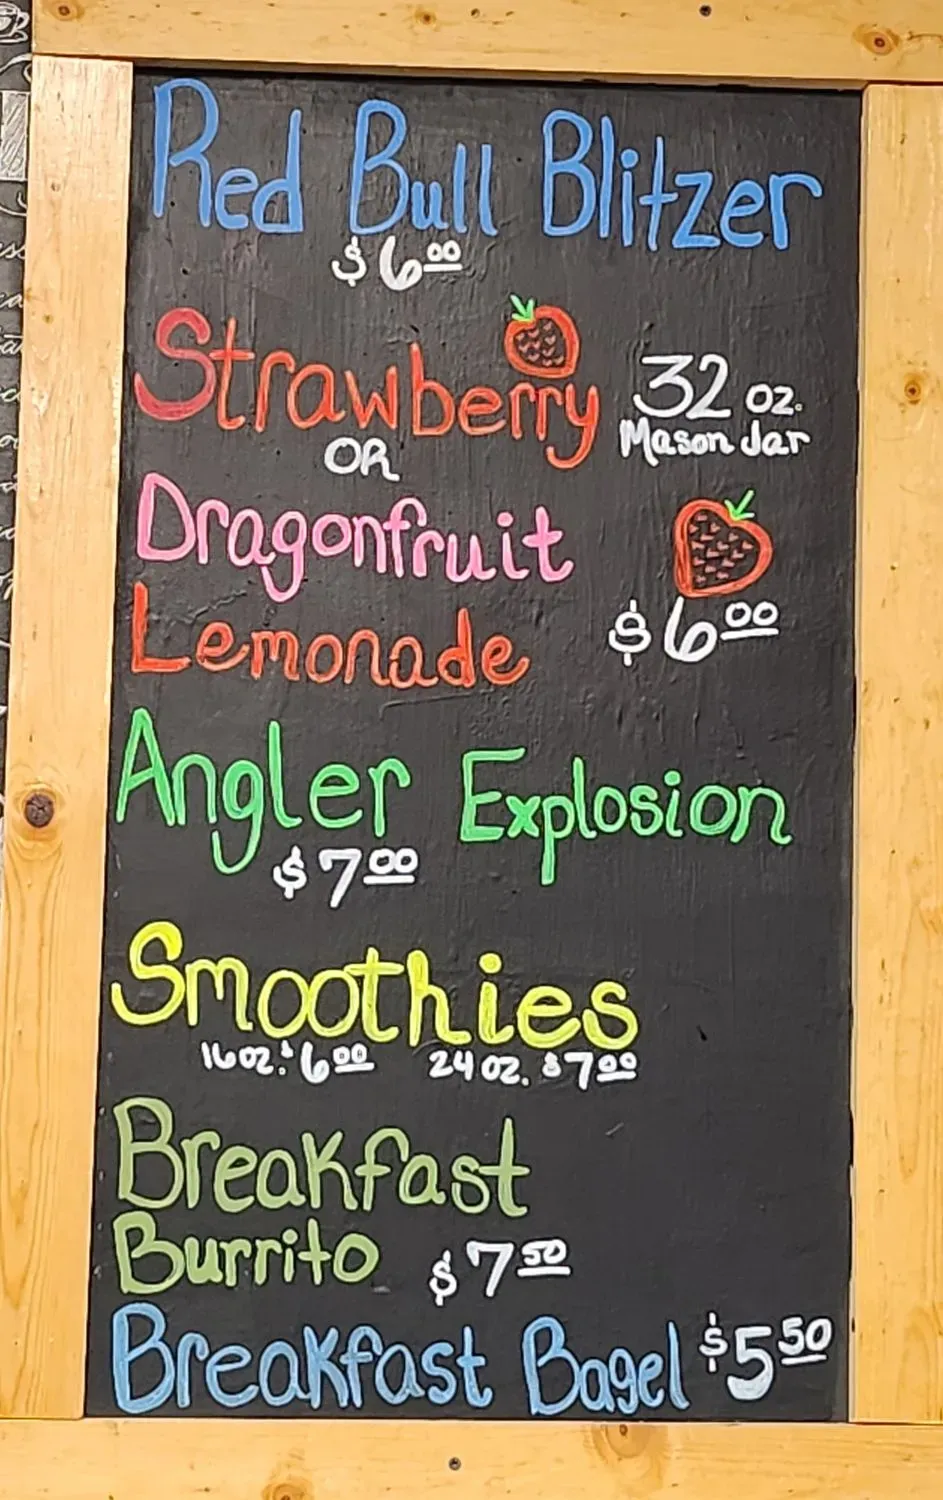 Red Bull Blitzer
$6.00
Strawberry
32 oz.
Mason Jar
OR
Dragonfruit
Lemonade
$6.00
Angler Explosion
$7.00
Smoothies
16oz. $6.00 24oz. $7.00
Breakfast
Burrito $7.50
Breakfast Bagel $5.50